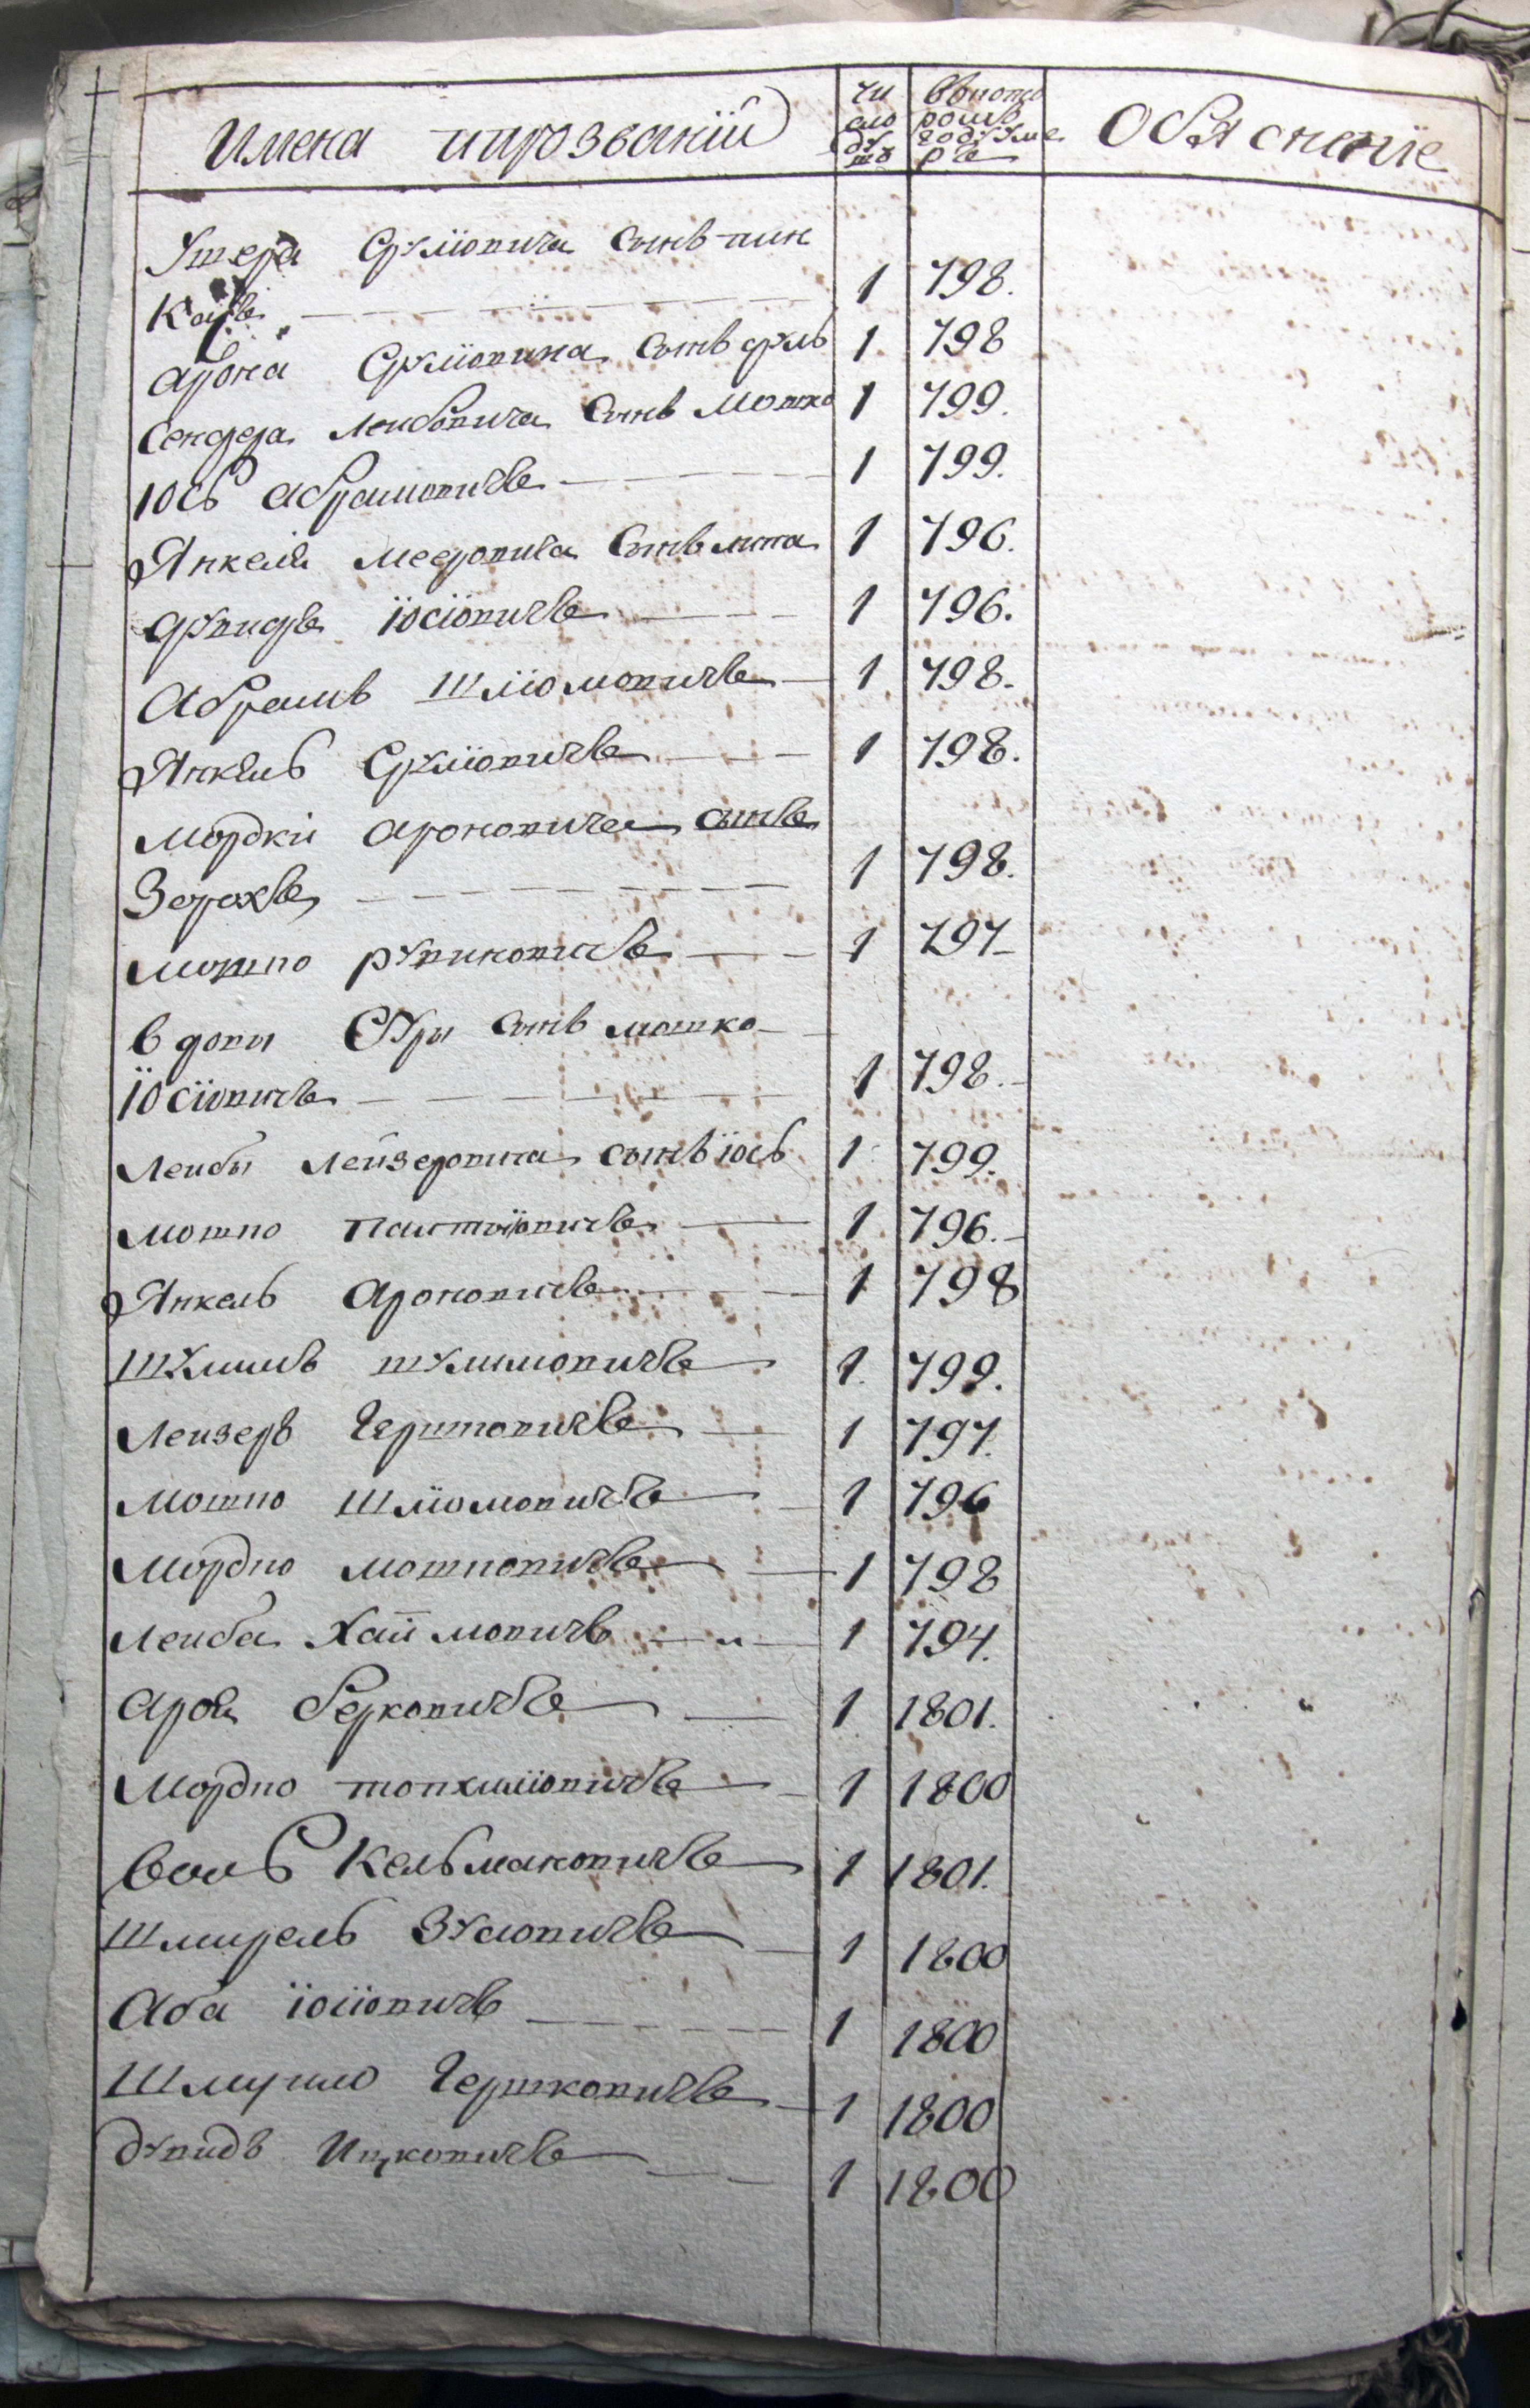 Имена ипрозваніи | чи сло ду шъ | Вкото ромъ году уме рли | Объясненіе
Ушера Срулiовича сынъ пин
касъ 1 798.
Арона Срулiовича сынъ сруль 1 798
Сендера Лейбовича сынъ мошко 1 799.
Юсь Абрамовичъ 1 799.
Янкеля Мееровича сынъ 1 796.
Дувидъ Іосіовичъ 1 796.
Абрамъ Шліомовичъ 1 798.
Янкель Сруліовичъ 1 798.
Мордки Ароновича сынъ
Зорохъ 1 798.
Мошко Рувиновичъ 1 797
вдовы Суры сынъ мошко
Іосіовичъ 1 798.
Лейбы Лейзеровича сынъ іось 1 799.
Мошко 1 796.
Янкель Ароновичъ 1 798
Шулимъ Шулимовичъ 1 799.
Лейзеръ Гершковичъ 1 797.
Мошко Шліомовичъ 1 796
Мордко Мошковичъ 1 798
Лейба Хаймовичъ 1 794.
Аронъ Берковичъ 1 1801.
Мордко 1 1800
Вольѳ Кельмановичъ 1 1801.
Шмерель Зусіовичъ 1 1800
Аба Іосіовичъ 1 1800
Шмуйло Гершковичъ 1 1800
Дувидъ Ицковичъ 1 1800